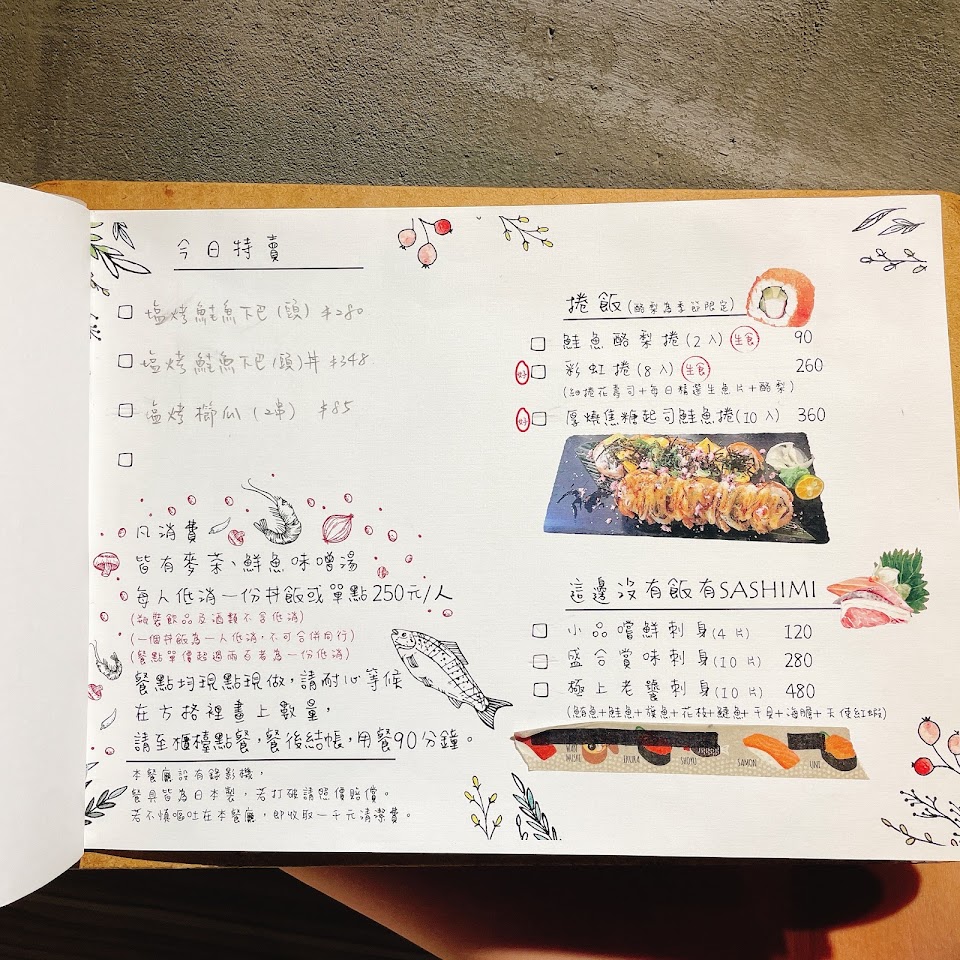 今日特賣
塩烤鮭魚下巴(頭) $280
塩烤鮭魚下巴(頭)丼 $348.
塩烤櫛瓜(2串) $85
凡消費
皆有麥茶、鮮魚味噌湯
每人低消一份丼飯或單點250元/人
(瓶裝飲品及酒類不含低消)
(一個丼飯為一人低消,不可合併同行)
(餐點單價超過兩百者為一份低消)
餐點均現點現做,請耐心等候
在方格裡畫上數量,
請至櫃檯點餐,餐後結帳,用餐90分鐘。
本餐廳設有錄影機,
餐具皆為日本製,若打破請照價賠償。
若不慎嘔吐在本餐廳,即收取一千元清潔費。
捲飯(酪梨為季節限定)
鮭魚酪梨捲(2入) 生食 90
好 彩虹捲(8入) 生食 260
(細捲花壽司+每日精選生魚片+酪梨)
好 厚燒焦糖起司鮭魚捲(10入) 360
這邊沒有飯有SASHIMI
小品嚐鮮刺身(4片) 120
盛合賞味刺身(10片) 280
極上老饕刺身(10片) 480
(鮪魚+鮭魚+旗魚+花枝+鰱魚+干貝+海膽+天使紅蝦)
IKURA SHOYU SAMON UNI